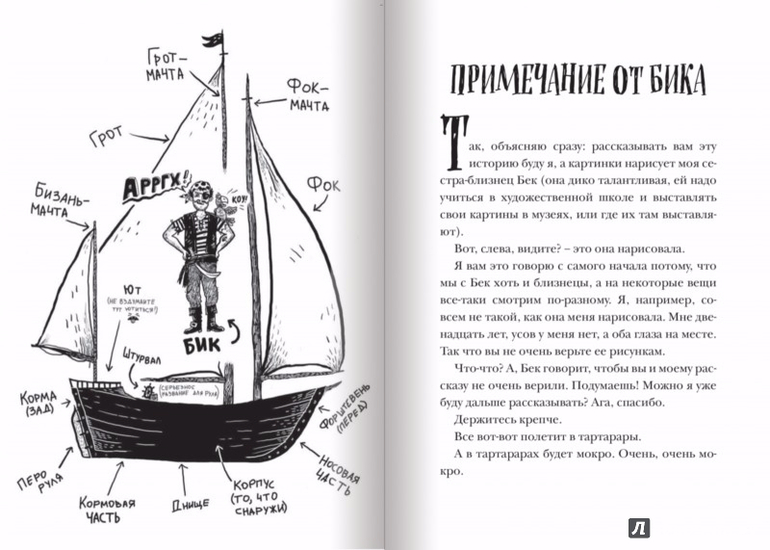 Грот-
мачта
Фок-
мачта
Грот
Аррргх!
Коу!
Фок
Бизань-
мачта
Ют
(не вздумайте
тут ютиться!)
Бик
Штурвал
(серьезное
название для руля)
Корма
(зад)
Форштевень
(перед)
Перо
руля
Кормовая
часть
Днище
Корпус
(то, что
снаружи)
Носовая
часть
ПРИМЕЧАНИЕ ОТ БИКА
Так, объясняю сразу: рассказывать вам эту
историю буду я, а картинки нарисует моя се-
стра-близнец Бек (она дико талантливая, ей надо
учиться в художественной школе и выставлять
свои картины в музеях, или где их там выставля-
ют).
Вот, слева, видите? – это она нарисовала.
Я вам это говорю с самого начала потому, что
мы с Бек хоть и близнецы, а на некоторые вещи
все-таки смотрим по-разному. Я, например, со-
всем не такой, как она меня нарисовала. Мне две-
надцать лет, усов у меня нет, а оба глаза на месте.
Так что вы не очень верьте ее рисункам.
Что-что? А, Бек говорит, чтобы вы и моему рас-
сказу не очень верили. Подумаешь! Можно я уже
буду дальше рассказывать? Ага, спасибо.
Держитесь крепче.
Все вот-вот полетит в тартарары.
А в тартарарах будет мокро. Очень, очень мо-
кро.
Л